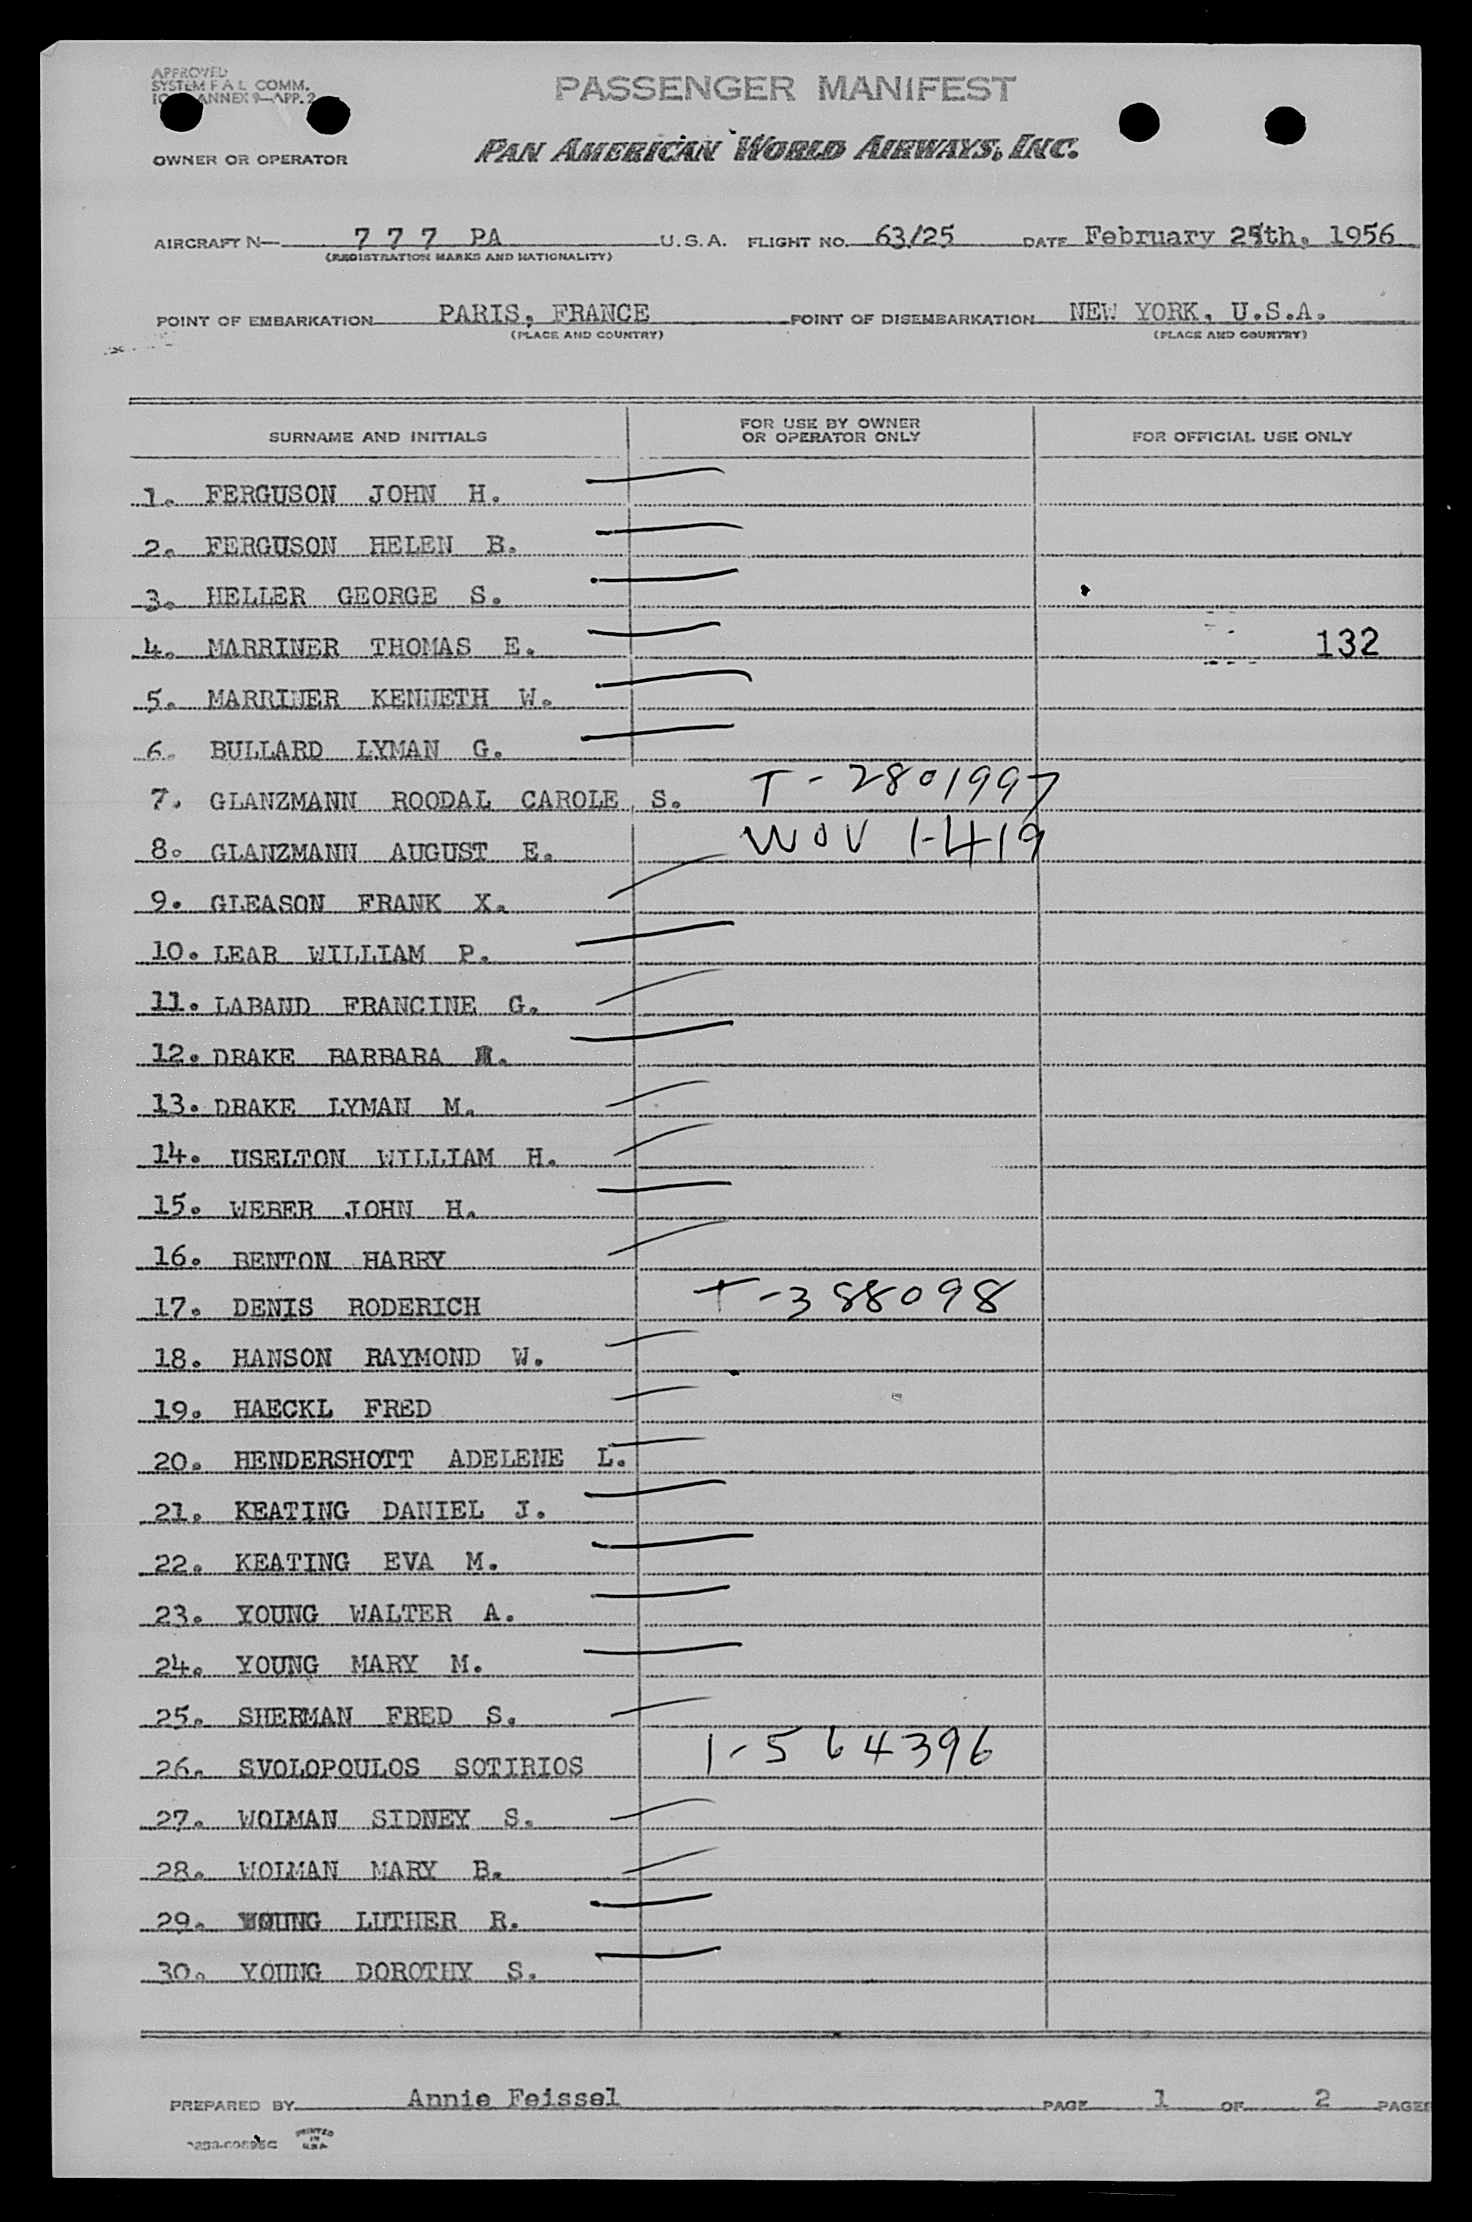 APPROVED
SYSTEM F A L COMM.
ANNEX 9—APP. 2
PASSENGER MANIFEST
OWNER OR OPERATOR
PAN AMERICAN WORLD AIRWAYS, INC.
AIRCRAFT N— 7 7 7 PA U.S.A. FLIGHT NO. 63/25 DATE February 25th, 1956
(REGISTRATION MARKS AND NATIONALITY)
POINT OF EMBARKATION PARIS, FRANCE POINT OF DISEMBARKATION NEW YORK, U.S.A.
(PLACE AND COUNTRY) (PLACE AND COUNTRY)
SURNAME AND INITIALS FOR USE BY OWNER OR OPERATOR ONLY FOR OFFICIAL USE ONLY
1. FERGUSON JOHN H.
2. FERGUSON HELEN B.
3. HELLER GEORGE S.
4. MARRINER THOMAS E. 132
5. MARRINER KENNETH W.
6. BULLARD LYMAN G.
7. GLANZMANN ROODAL CAROLE S. T-2801997
8. GLANZMANN AUGUST E. WOV 1-419
9. GLEASON FRANK X.
10. LEAR WILLIAM P.
11. LABAND FRANCINE G.
12. DRAKE BARBARA
13. DRAKE LYMAN M.
14. USELTON WILLIAM H.
15. WEBER JOHN H.
16. BENTON HARRY
17. DENIS RODERICH T-388098
18. HANSON RAYMOND W.
19. HAECKL FRED
20. HENDERSHOTT ADELENE L.
21. KEATING DANIEL J.
22. KEATING EVA M.
23. YOUNG WALTER A.
24. YOUNG MARY M.
25. SHERMAN FRED S.
26. SVOLOPOULOS SOTIRIOS 1-564396
27. WOLMAN SIDNEY S.
28. WOLMAN MARY B.
29. YOUNG LUTHER R.
30. YOUNG DOROTHY S.
PREPARED BY Annie Feissel PAGE 1 OF 2 PAGES
PRINTED
IN
U.S.A.